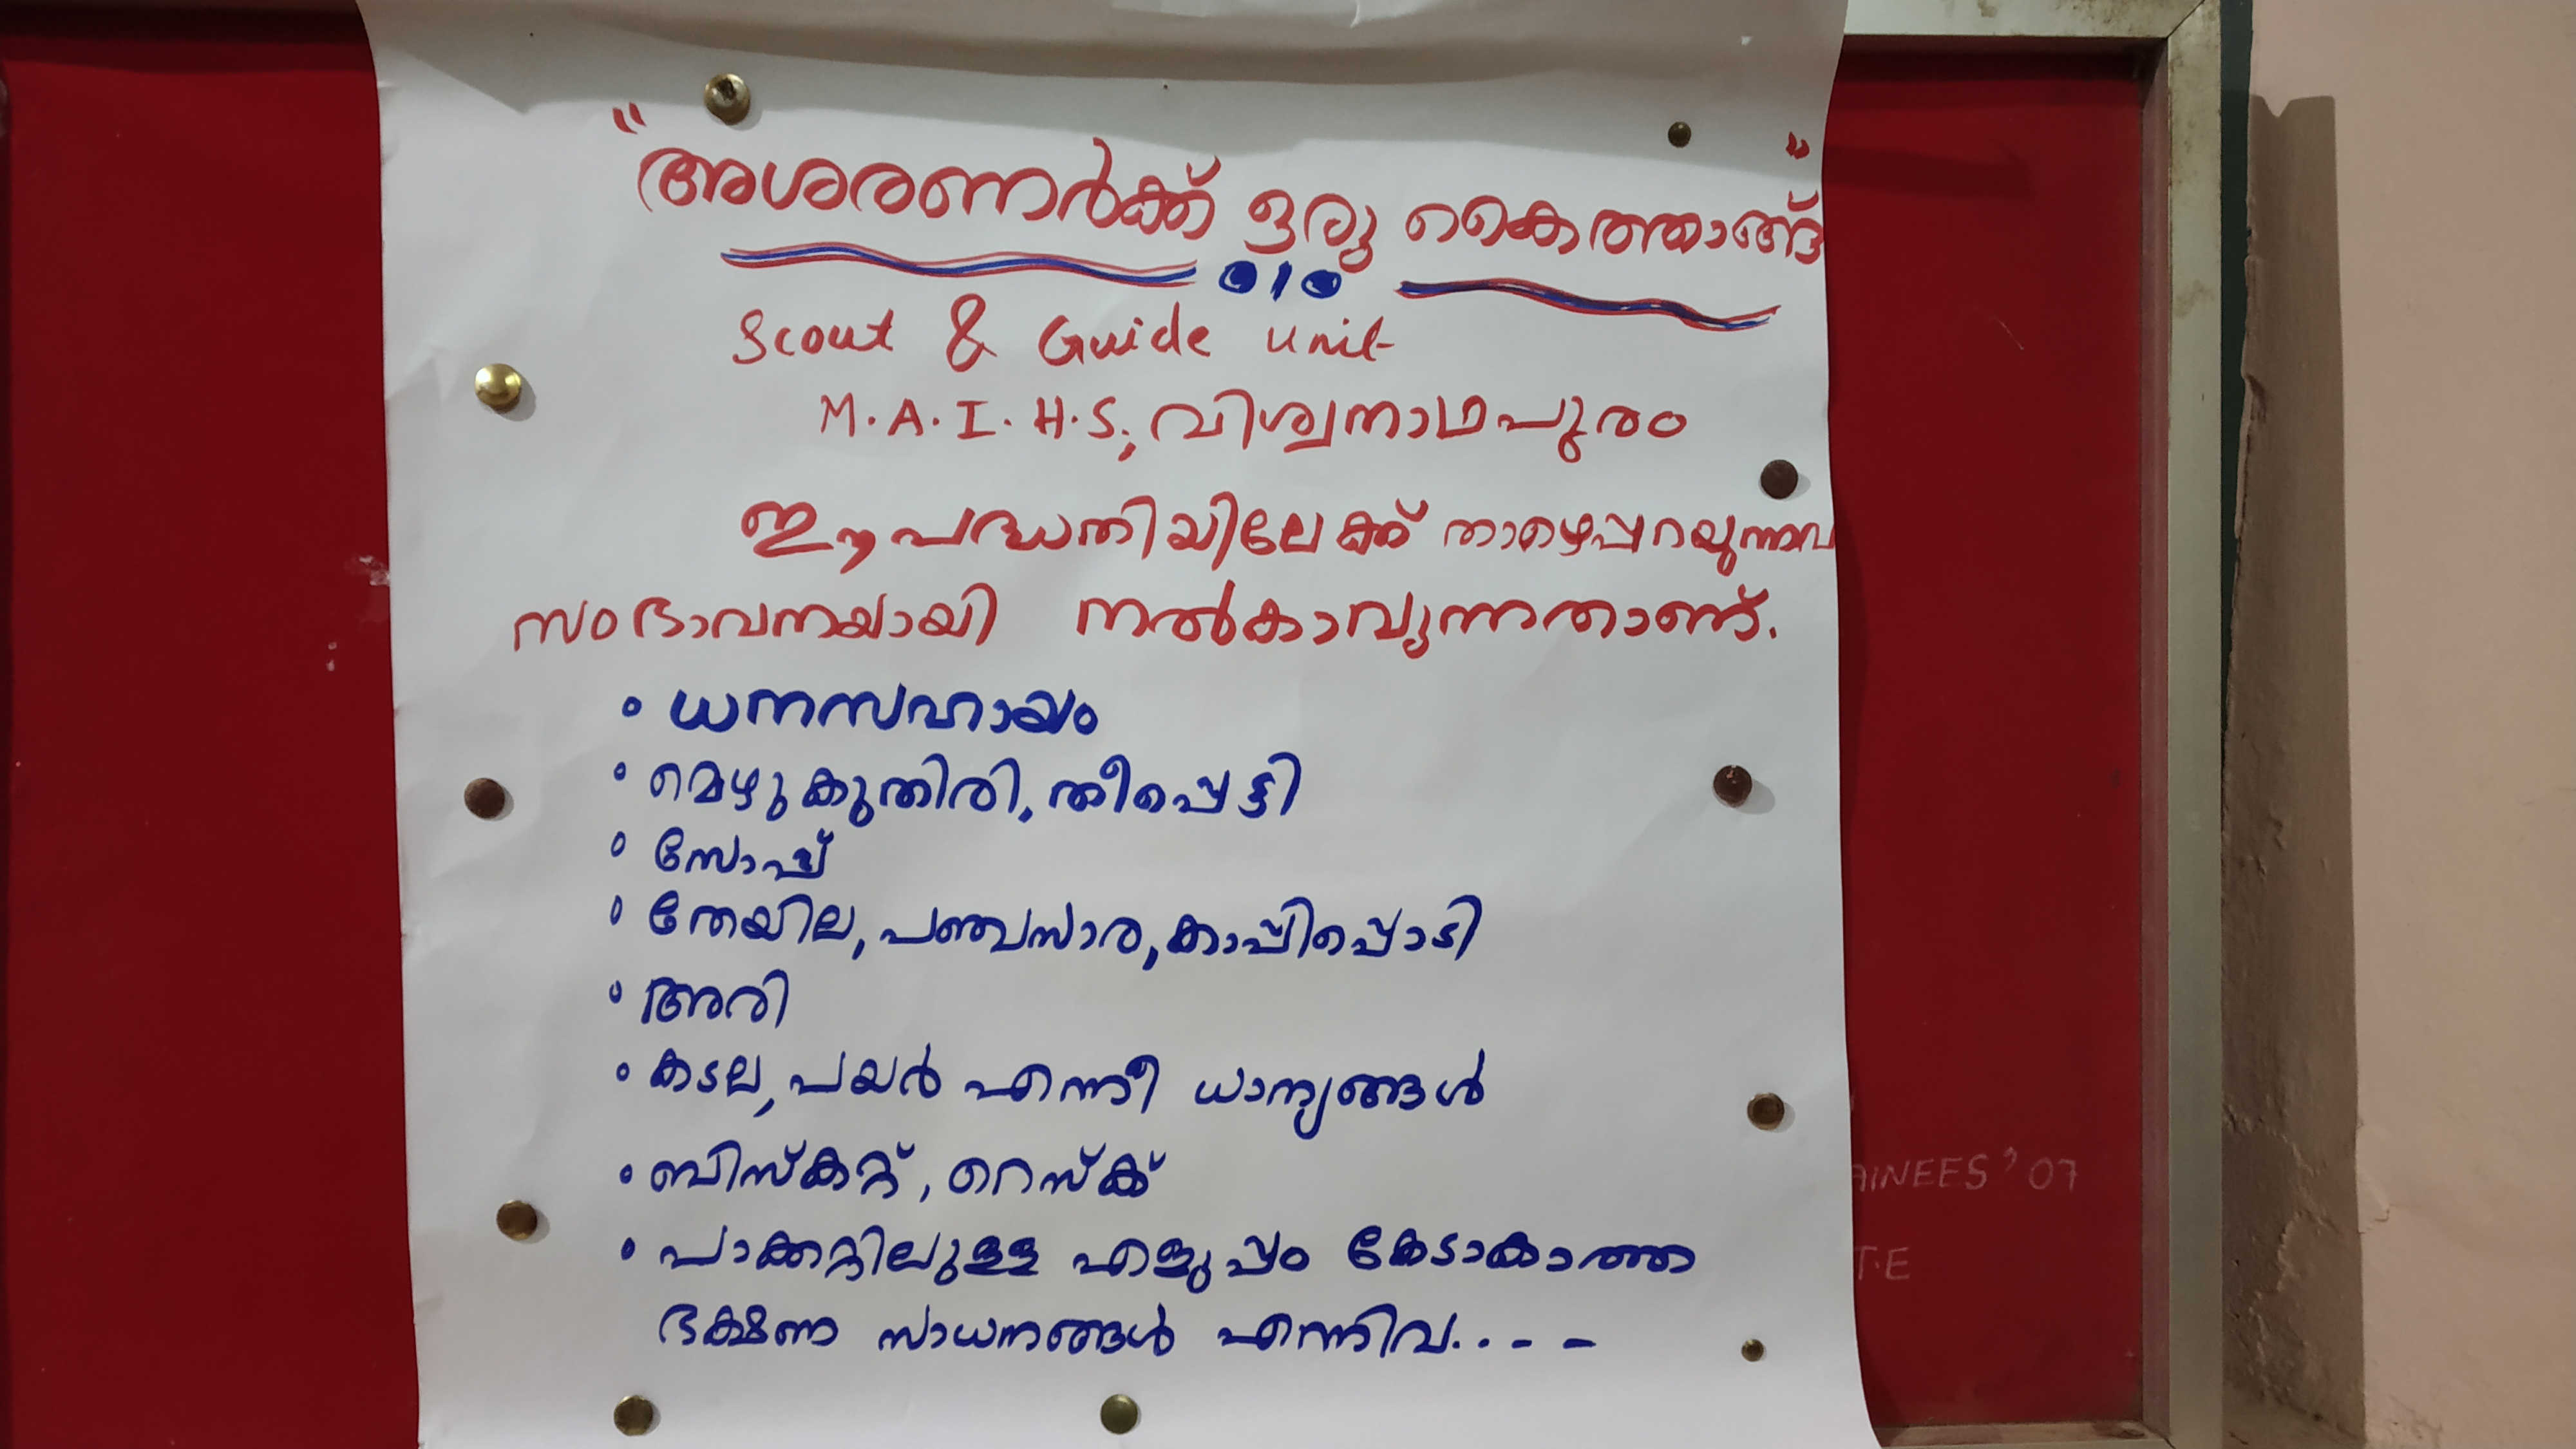 "അശരണർക്ക് ഒരു കൈത്താങ്ങ്"
Scout & Guide unit
M.A.I.H.S., വിശ്വനാഥപുരം
ഈ പദ്ധതിയിലേക്ക് താഴെപ്പറയുന്നവ
സംഭാവനയായി നൽകാവുന്നതാണ്.
• ധനസഹായം
• മെഴുകുതിരി, തീപ്പെട്ടി
• സോപ്പ്
• തേയില, പഞ്ചസാര, കാപ്പിപ്പൊടി
• അരി
• കടല, പയർ എന്നീ ധാന്യങ്ങൾ
• ബിസ്കറ്റ്, റെസ്ക്
• പാക്കറ്റിലുള്ള എളുപ്പം കേടാകാത്ത
ഭക്ഷണ സാധനങ്ങൾ എന്നിവ..--
AINEES'07
T.E